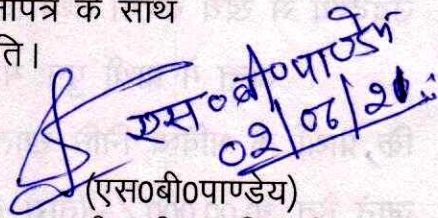 ापत्र के साथ
ति।
एस०बी०पाण्डेय
02/06/21
(एस0बी0पाण्डेय)